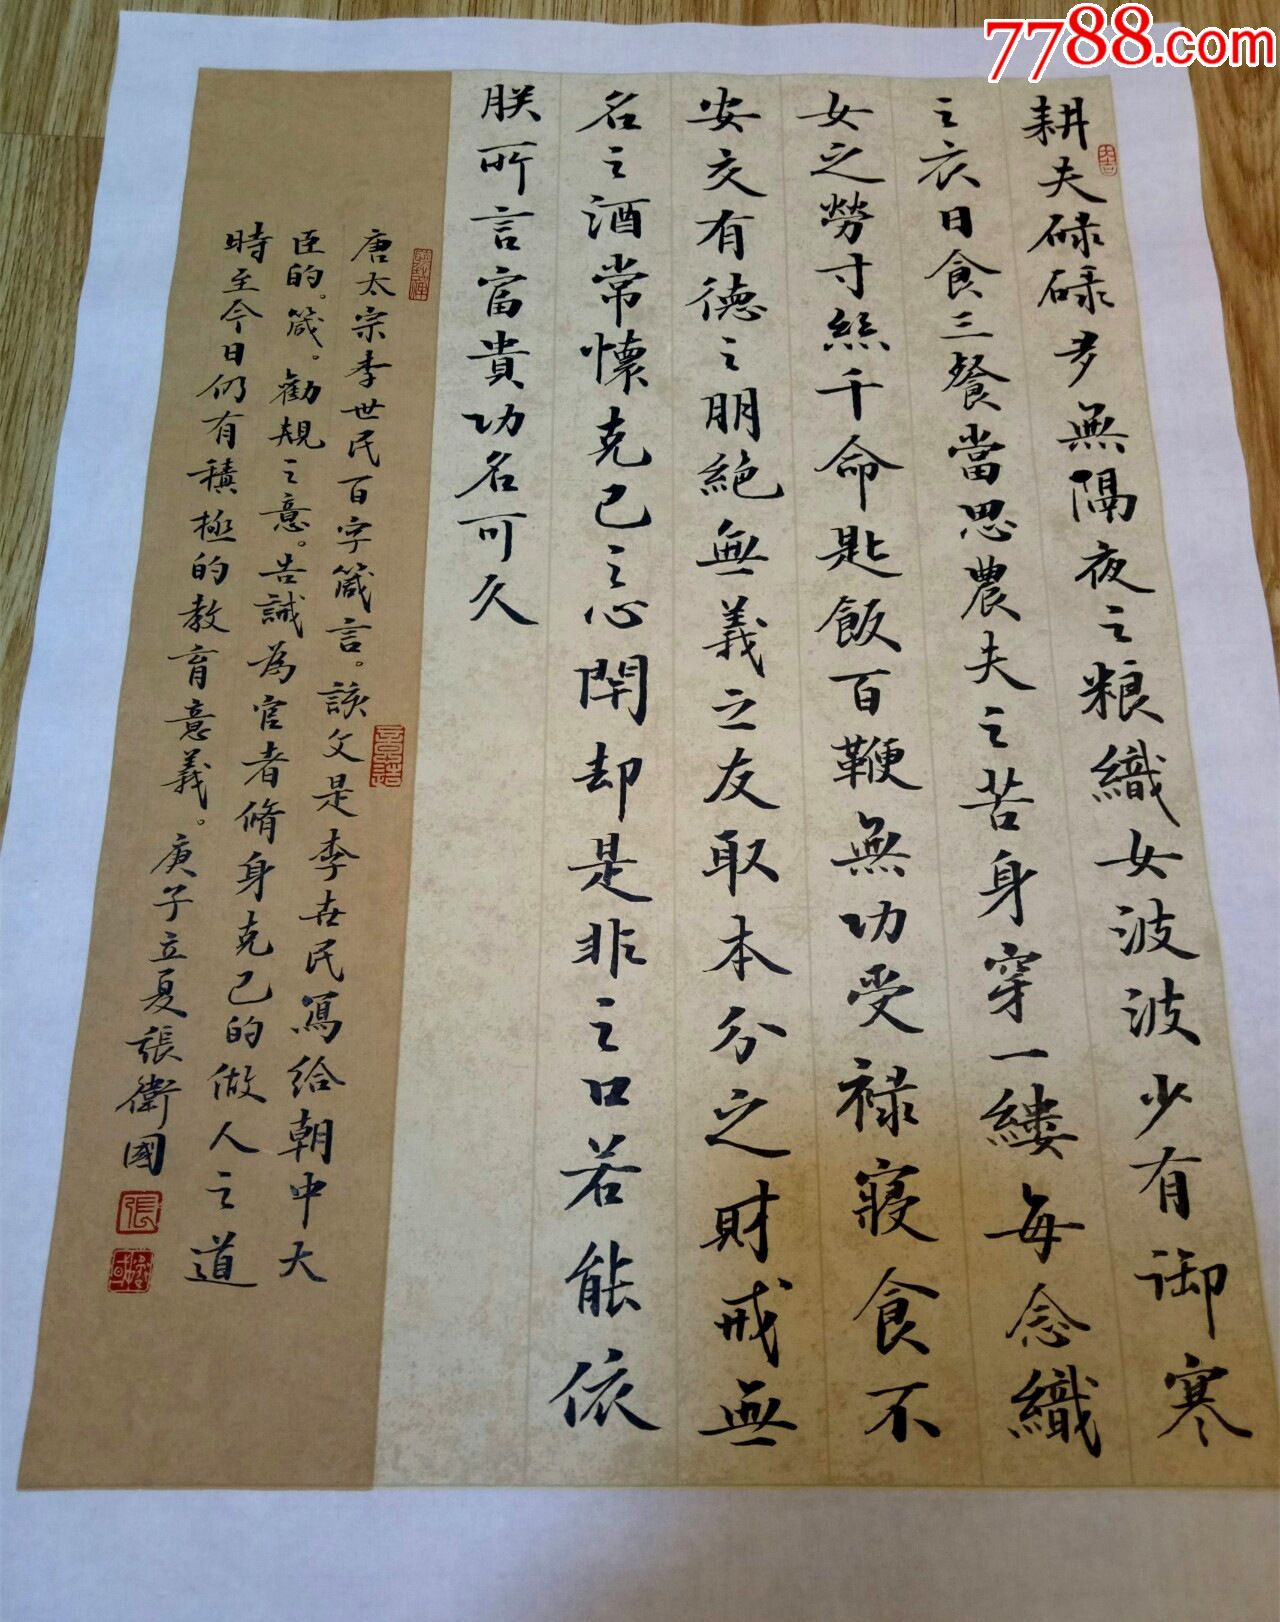 7788.com
耕夫碌碌多無隔夜之粮織女波波少有御寒
之衣日食三餐當思農夫之苦身穿一縷每念織
女之勞寸絲千命匙飯百鞭無功受禄寢食不
安交有德之朋絕無義之友取本分之財戒無
名之酒常懷克己之心閉却是非之口若能依
朕所言富貴功名可久
唐太宗李世民百字箴言。該文是李世民寫給朝中大
臣的。箴。勸規之意。告誡為官者脩身克己的做人之道
時至今日仍有積極的教育意義。庚子立夏張衛國
大吉
張